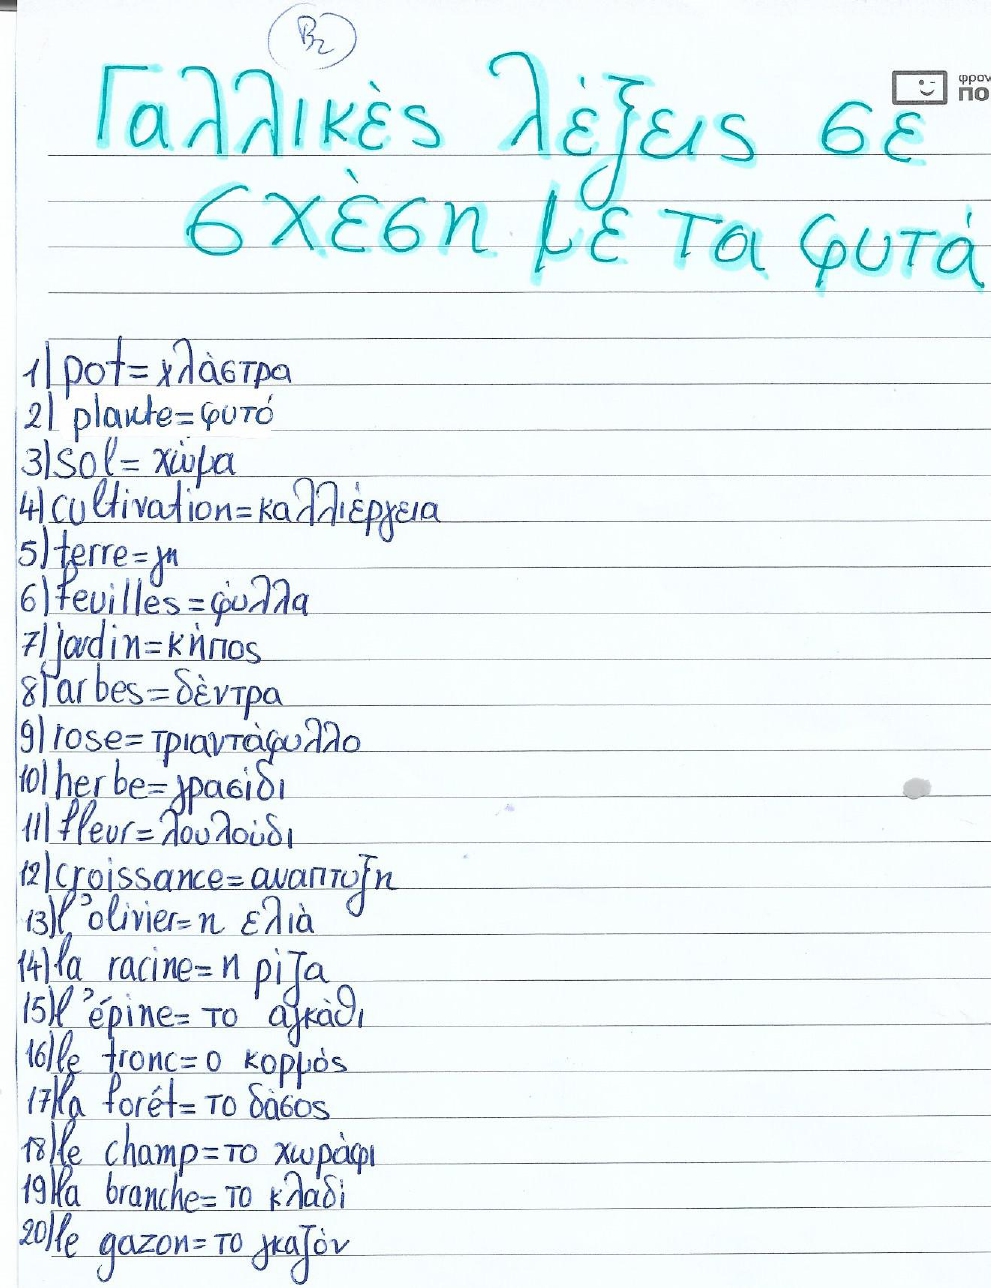 Β2
Γαλλικὲς λέξεις σε
σχὲση με τα φυτά
φρον
ΠΟ
1) pot= γλὰστρα
2) plante= φυτό
3) sol= χὼμα
4) cultivation= καλλιέργεια
5) terre= γη
6) feuilles= φὺλλα
7) jardin= κὴπος
8) arbes= δὲντρα
9) rose= τριαντὰφυλλο
10) herbe= γρασίδι
11) fleur= λουλοὺδι
12) croissance= αναπτυξη
13) l'olivier= η ελιὰ
14) la racine= η ρὶζα
15) l'épine= το αγκὰθι
16) le tronc= ο κορμὸς
17) la forét= το δὰσος
18) le champ= το χωρὰφι
19) la branche= το κλαδὶ
20) le gazon= το γκαζόν